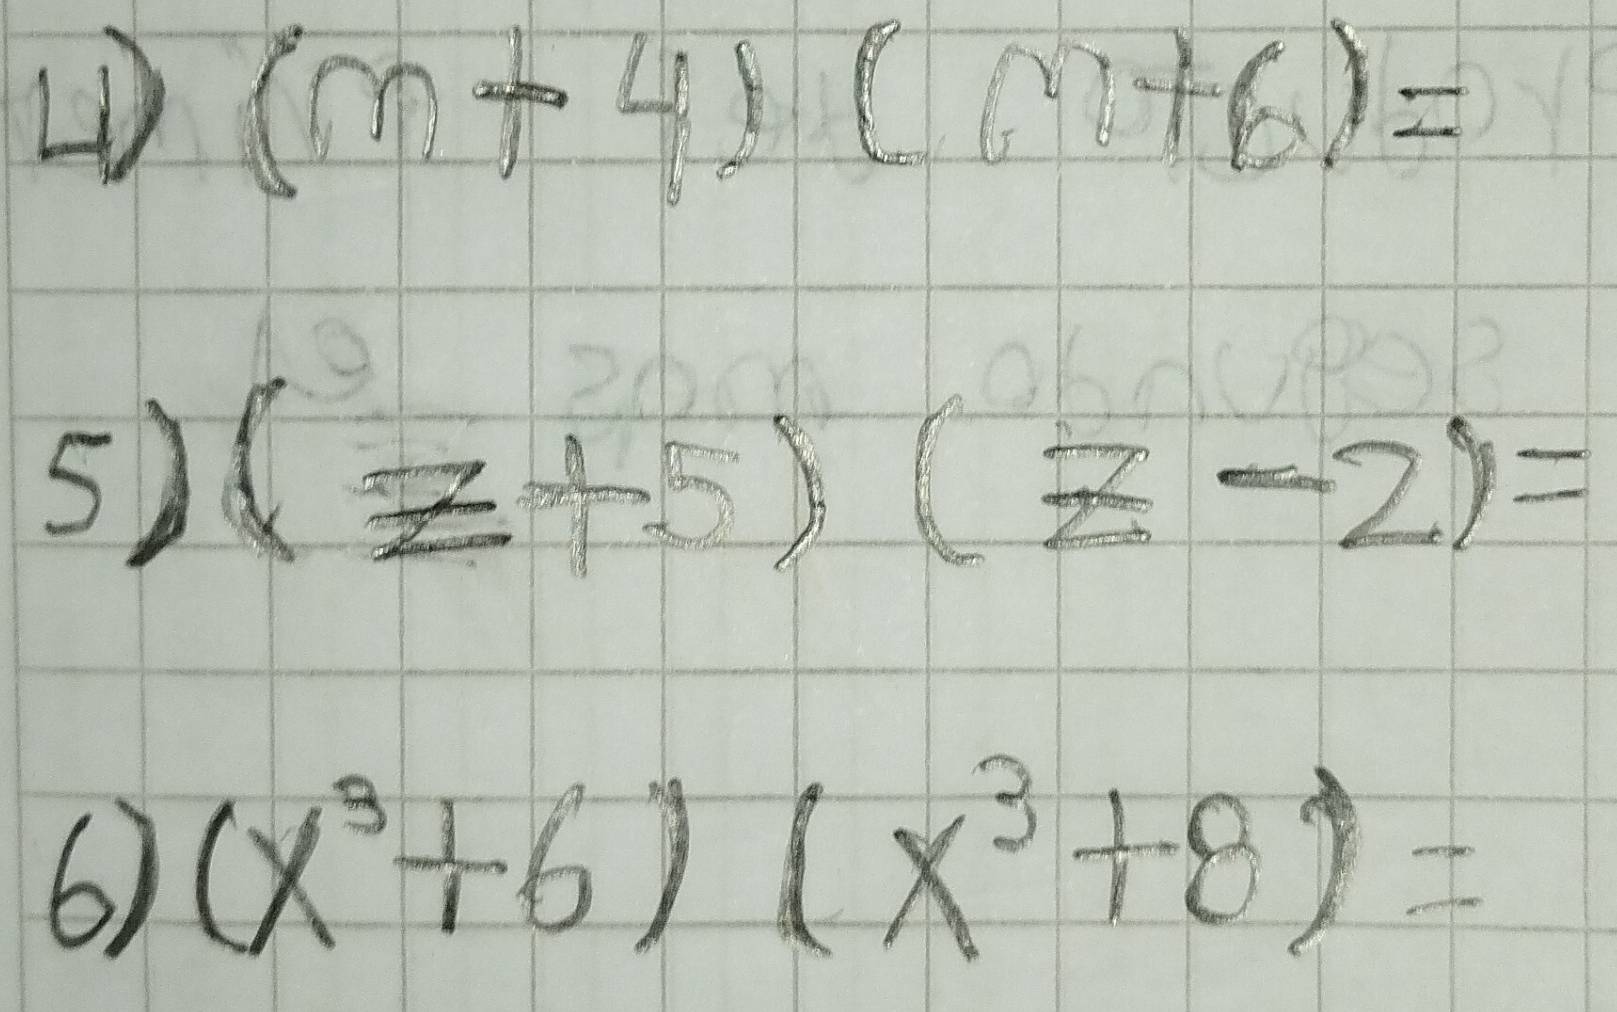 4) (m + 4) (m+6) =
5) (z+5) (z - 2) =
6) (x³+6) (x³+8) =